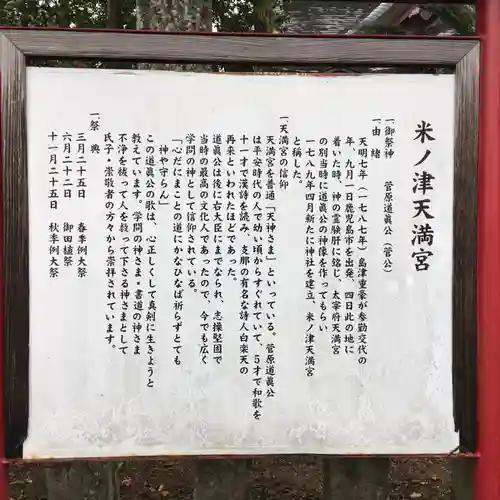 米ノ津天満宮
一、御祭神　菅原道眞公（菅公）
一、由緒
天明七年（一七八七年）島津重豪が参勤交代の
年、九月一日鹿児島市を出発、四日此の地に
着いた時、神の霊験肝に銘じ、太宰府天満宮
の別当時に道眞公の神像を作ってもらい
一七八九年四月新たに神社を建立、米ノ津天満宮
と称した。
一、天満宮の信仰
天満宮を普通「天神さま」といっている。菅原道眞公
は平安時代の人で幼い頃からすぐれていて、5才で和歌を
十一才で漢詩を読み、支那の有名な詩人白楽天の
再来といわれたほどであった。
道眞公は後に右大臣にまでなられ、志操堅固で
当時の最高の文化人であったので、今でも広く
学問の神として信仰されている。
「心だにまことの道にかなひなば祈らずとても
神や守らん」
この道眞公の歌は、心正しくして真剣に生きようと
教えています。学問の神さま・書道の神さま
不浄を祓って人を救って下さる神さまとして
氏子・崇敬者の方々から崇拝されています。
一、祭典
三月二十五日　春季例大祭
六月二十二日　御田植祭
十一月二十五日　秋季例大祭